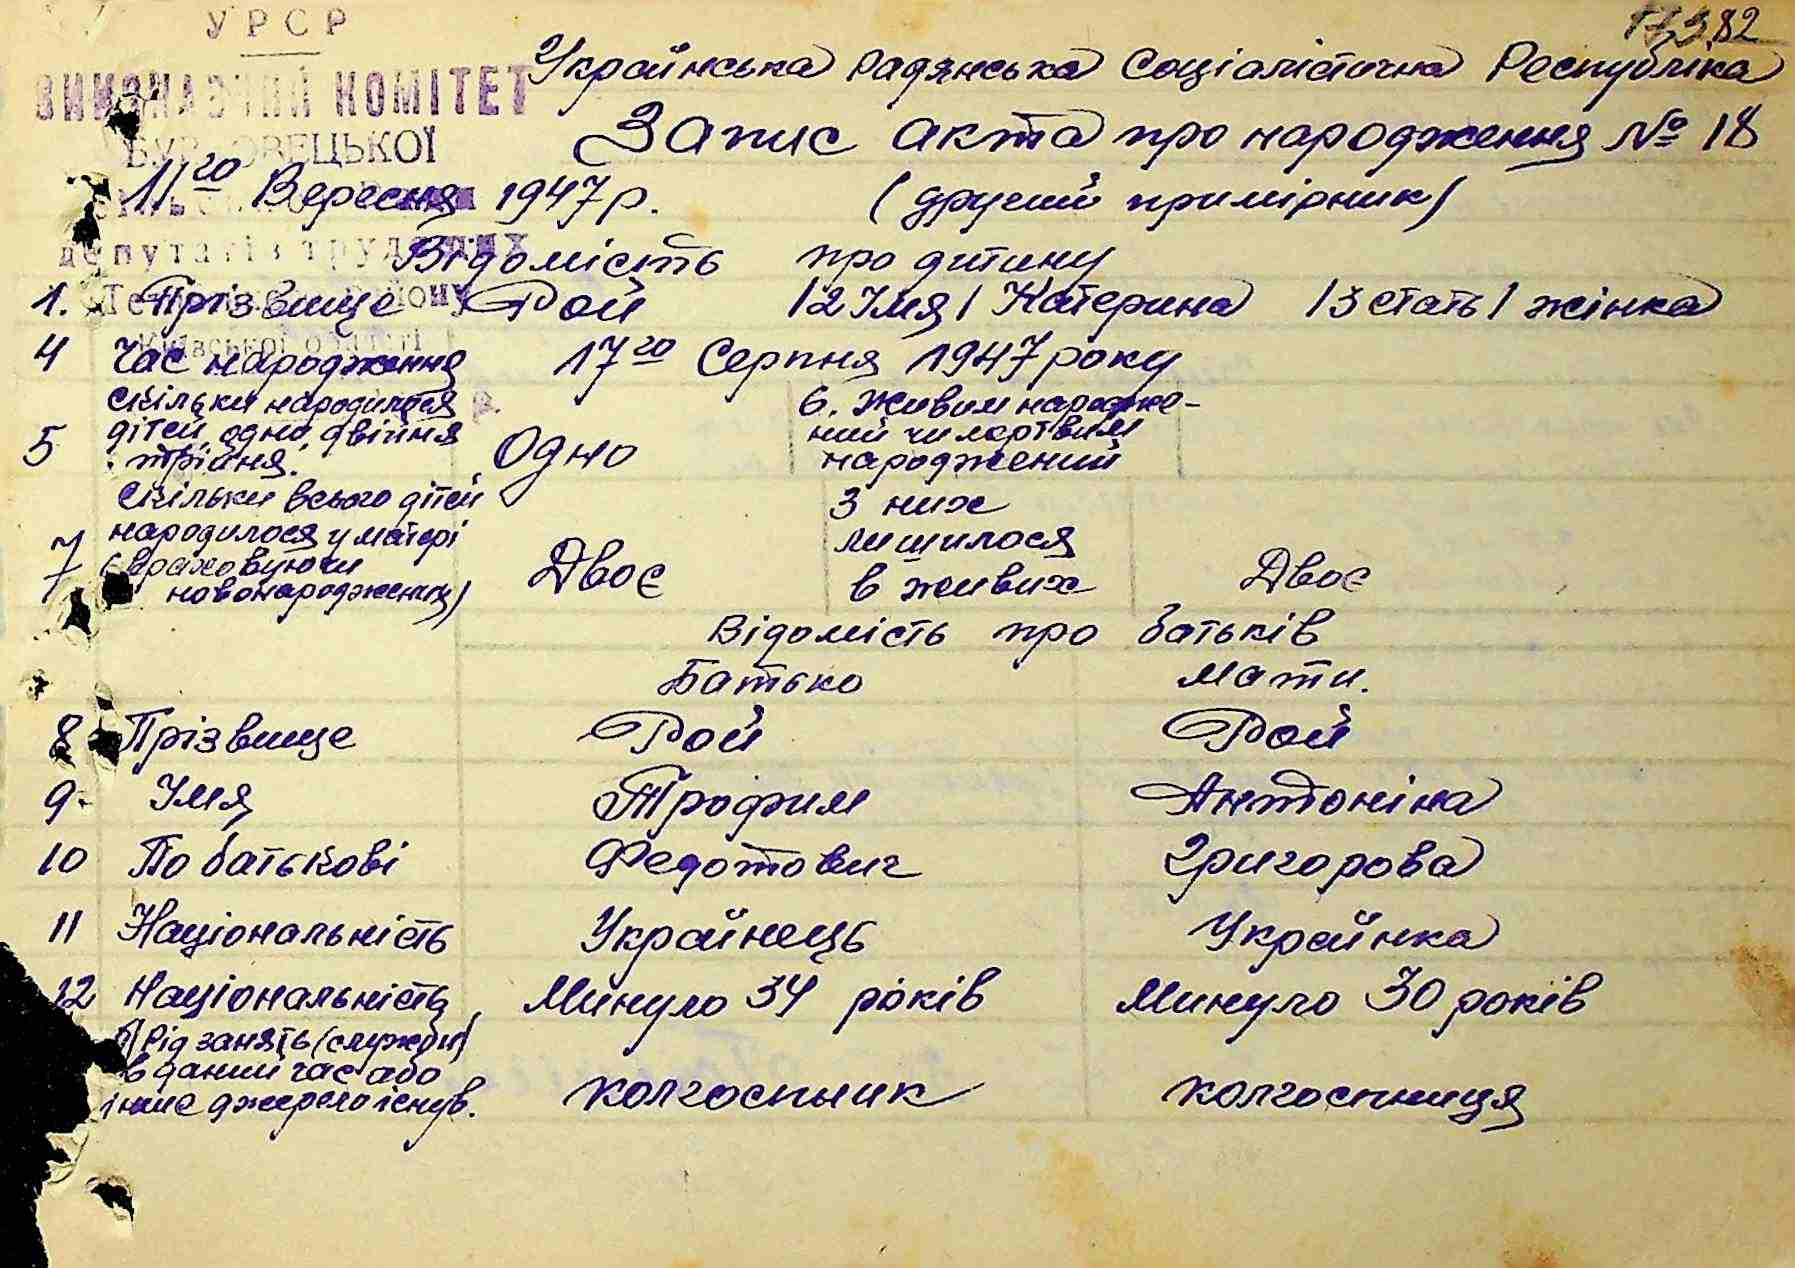 УРСР
82
ВИКОНАВЧИЙ КОМІТЕТ
Українська Радянська Соціалістична Республіка
Запис акта про народження № 18
11го Вересня 1947 р. (другий примірник)
депутатів трудящих
Відомість про дитину
1. Прізвище Рой /2 Імя/ Катерина /3 стать/ жінка
Київської області
4 Час народження 17го Серпня 1947 року
5 Скільки народилося дітей, одно, двійня, трійня. Одно 6. Живим народже-
ний чи мертвим
народжений
7 Скільки всього дітей
народилося у матері
(враховуючи
новонароджених) Двоє З них
лишилося
в живих Двоє
Відомість про батьків
Батько Мати.
8 Прізвище Рой Рой
9. Імя Трофим Антоніна
10 По батькові Федотович Григорова
11 Національність Українець Українка
12 Національність Минуло 34 років Минуло 30 років
а/ Рід занять (служби)
в даний час або
інше джерело існув. колгоспник колгоспниця